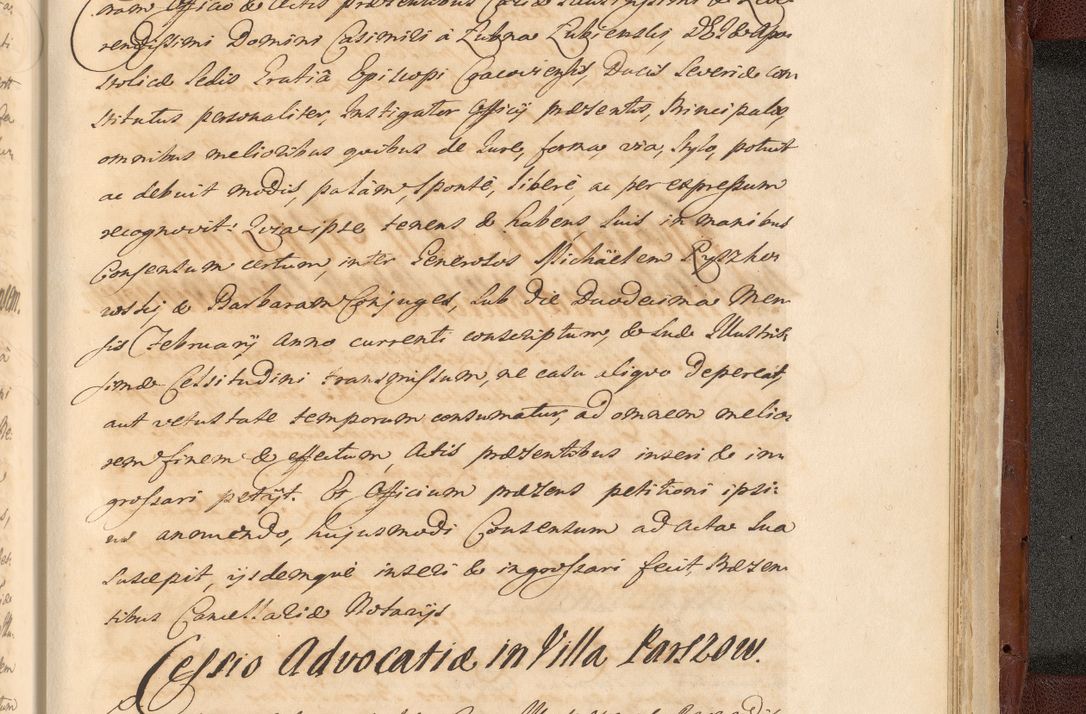 ram Officio & Actis præsentibus
rendissimi Domini Casimiri à Łubna Łubienski, D & Apo-
stolicæ Sedis Gratiâ Episcopi Cracoviensis, Ducis Severiæ con-
stitutus personaliter, Instigator Officij præsentis, Principalis,
omnibus melioribus quibus de Jure, forma, via, stylo, potuit
ac debuit modis, palàm, sponte, liberè ac per expressum
recognovit: Quia ipse tenens & habens suis in manibus
Consensum certum, inter Generosos Michäelem Ryszko-
wskij & Barbaram Conjuges, sub die Duodecima Men-
sis Februarij Anno currenti conscriptum, & suæ Illustris-
simæ Celsitudini transmissum, ne casu aliquo depereat,
aut vetustate temporum consumatur, ad omnem melio-
rem finem & effectum, Actis præsentibus inseri & in-
grossari petijt. Et Officium præsens petitioni ipsi-
us annuendo, hujusmodi Consensum ad Acta sua
suscepit, ijsdemque inseri & ingrossari fecit, Præsen-
tibus Cancellariæ Notarijs
Cessio Advocatiæ in Villa Parszow.